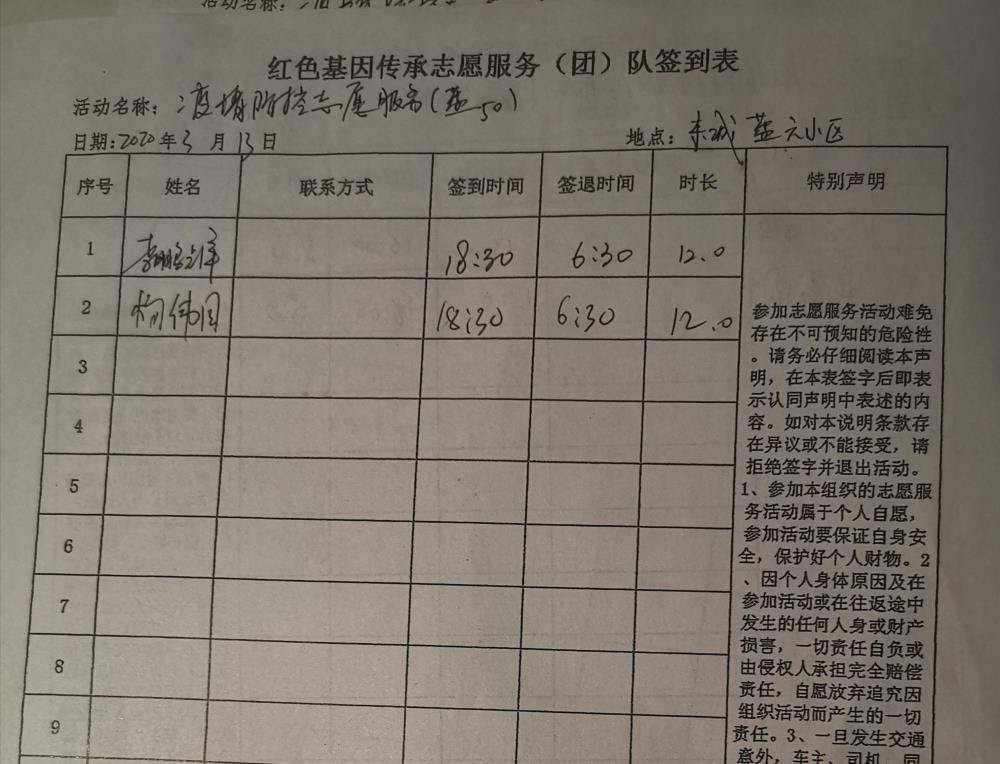 活动名称:
红色基因传承志愿服务（团）队签到表
活动名称: 疫情防控志愿服务(蓝50)
日期: 2020年3月13日 地点: 东城蓝天小区
序号 姓名 联系方式 签到时间 签退时间 时长 特别声明
1 18:30 6:30 12.0
2 杨伟国 18:30 6:30 12.0
3
4
5
6
7
8
9
参加志愿服务活动难免
存在不可预知的危险性
。请务必仔细阅读本声
明，在本表签字后即表
示认同声明中表述的内
容。如对本说明条款存
在异议或不能接受，请
拒绝签字并退出活动。
1、参加本组织的志愿服
务活动属于个人自愿，
参加活动要保证自身安
全，保护好个人财物。2
、因个人身体原因及在
参加活动或在往返途中
发生的任何人身或财产
损害，一切责任自负或
由侵权人承担完全赔偿
责任，自愿放弃追究因
组织活动而产生的一切
责任。3、一旦发生交通
意外，车主、司机、同